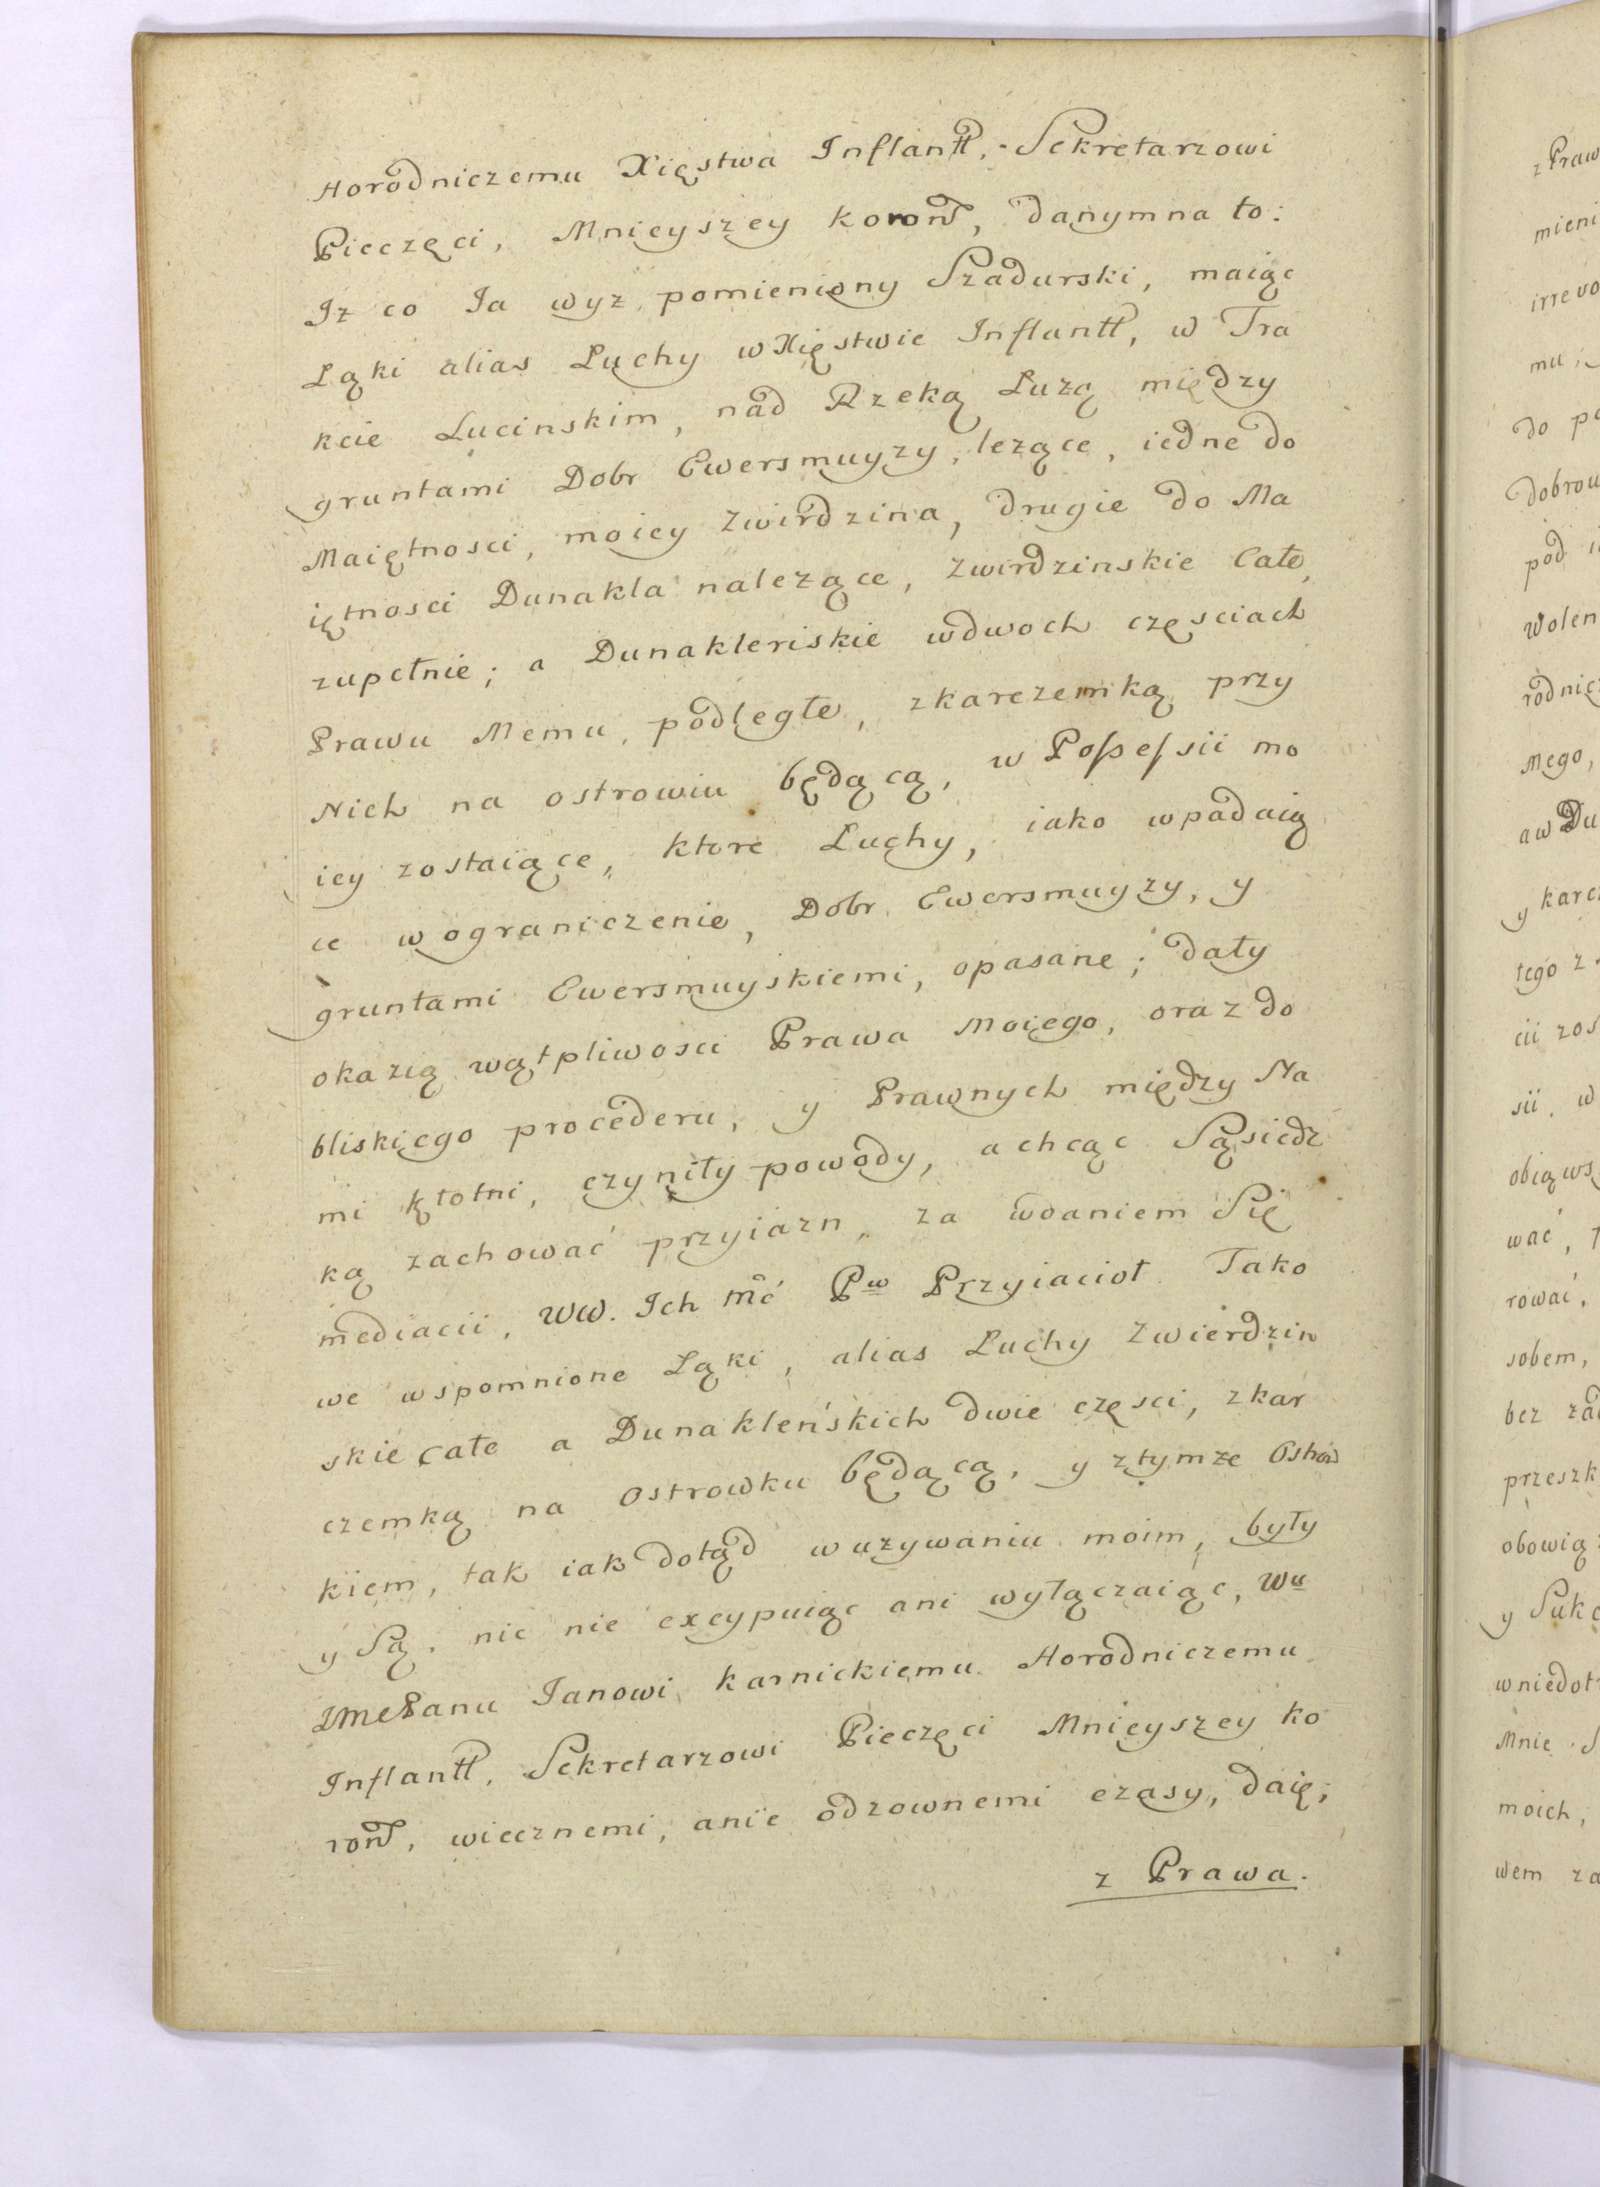 Horodniczemu Xięstwa Inflantt, Sekretarzowi
Pieczęci, Mnieyszey koron, danym na to:
Iz co Ia wyz pomieniony Szadurski, maiąc
Łąki alias Łuchy w Xięstwie Inflantt, w Tra
kcie Lucinskim, nad Rzeką Łuzą między
gruntami Dobr Ewersmuyzy, lezące, iedne do
Maiętnosci, moiey Zwirdzina, drugie do Ma
iętnosci Dunakla nalezące, Zwirdzinskie Całe,
zupełnie; a Dunaklenskie w dwoch częsciach
Prawu Memu, podległe, z karczemką przy
Nich na ostrowiu będącą, w Possessii mo
iey zostaiące, ktore Łuchy, iako wpadaią
ce w ograniczenie, Dobr Ewersmuyzy, y
gruntami Ewersmuyskiemi, opasane; dały
okazią wątpliwosci Prawa Moiego, oraz do
bliskiego procederu, y Prawnych między Na
mi kłotni, czyniły powody, a chcąc Sąsiedz
ką zachować przyiazn, za wdaniem Się
mediacii, WW. Ich Mć Pw Przyiacioł. Tako
we wspomnione Łąki, alias Łuchy Zwierdzin
skie całe a Dunakleńskich dwie częsci, z kar
czemką na Ostrowku będącą, y z tymze Ostrow
kiem, tak iak dotąd w uzywaniu moim, były
y Są, nic nie excypuiąc ani wyłączaiąc, Wu
JmcPanu Janowi Karnickiemu Horodniczemu
Inflantt, Sekretarzowi Pieczęci Mnieyszey ko
ron, wiecznemi, anie odzownemi czasy, daię;
z Prawa.
z Praw
mieni
irrevo
mu,
do po
dobrow
pod
Wolen
rodnicz
Mego,
a w Du
y karcz
tego z
cii zos
sii, w
obiąws
wać,
rować,
sobem,
bez zad
przeszk
obowiąz
y Sukc
w niedot
Mnie S
moich,
wem za